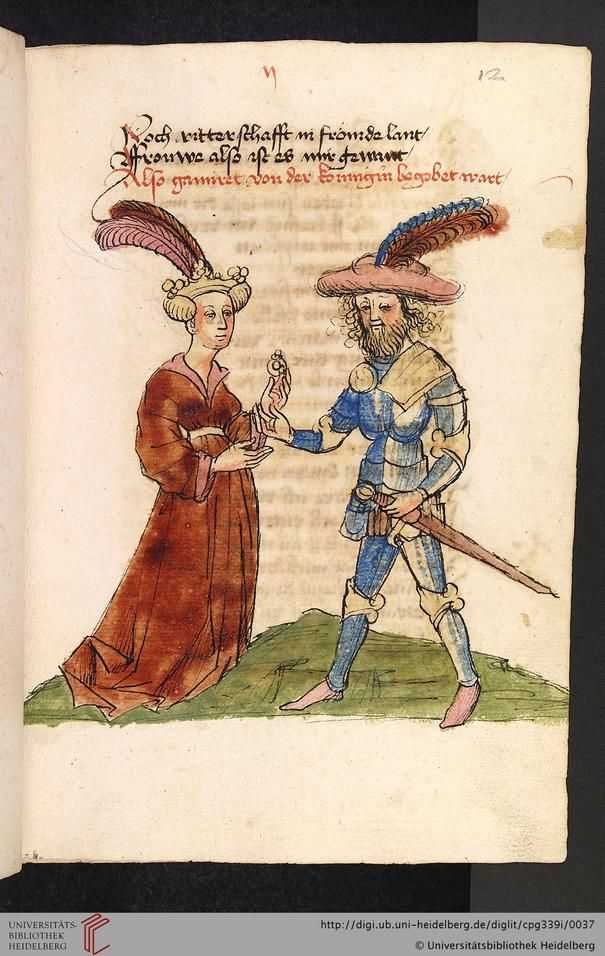 vj
12
Noch ritterschafft in frömde lant
Frouwe also ist es mir gewant
Also gamiret von der konnigin begobet wart
UNIVERSITÄTS-
BIBLIOTHEK
HEIDELBERG
http://digi.ub.uni-heidelberg.de/diglit/cpg339i/0037
© Universitätsbibliothek Heidelberg